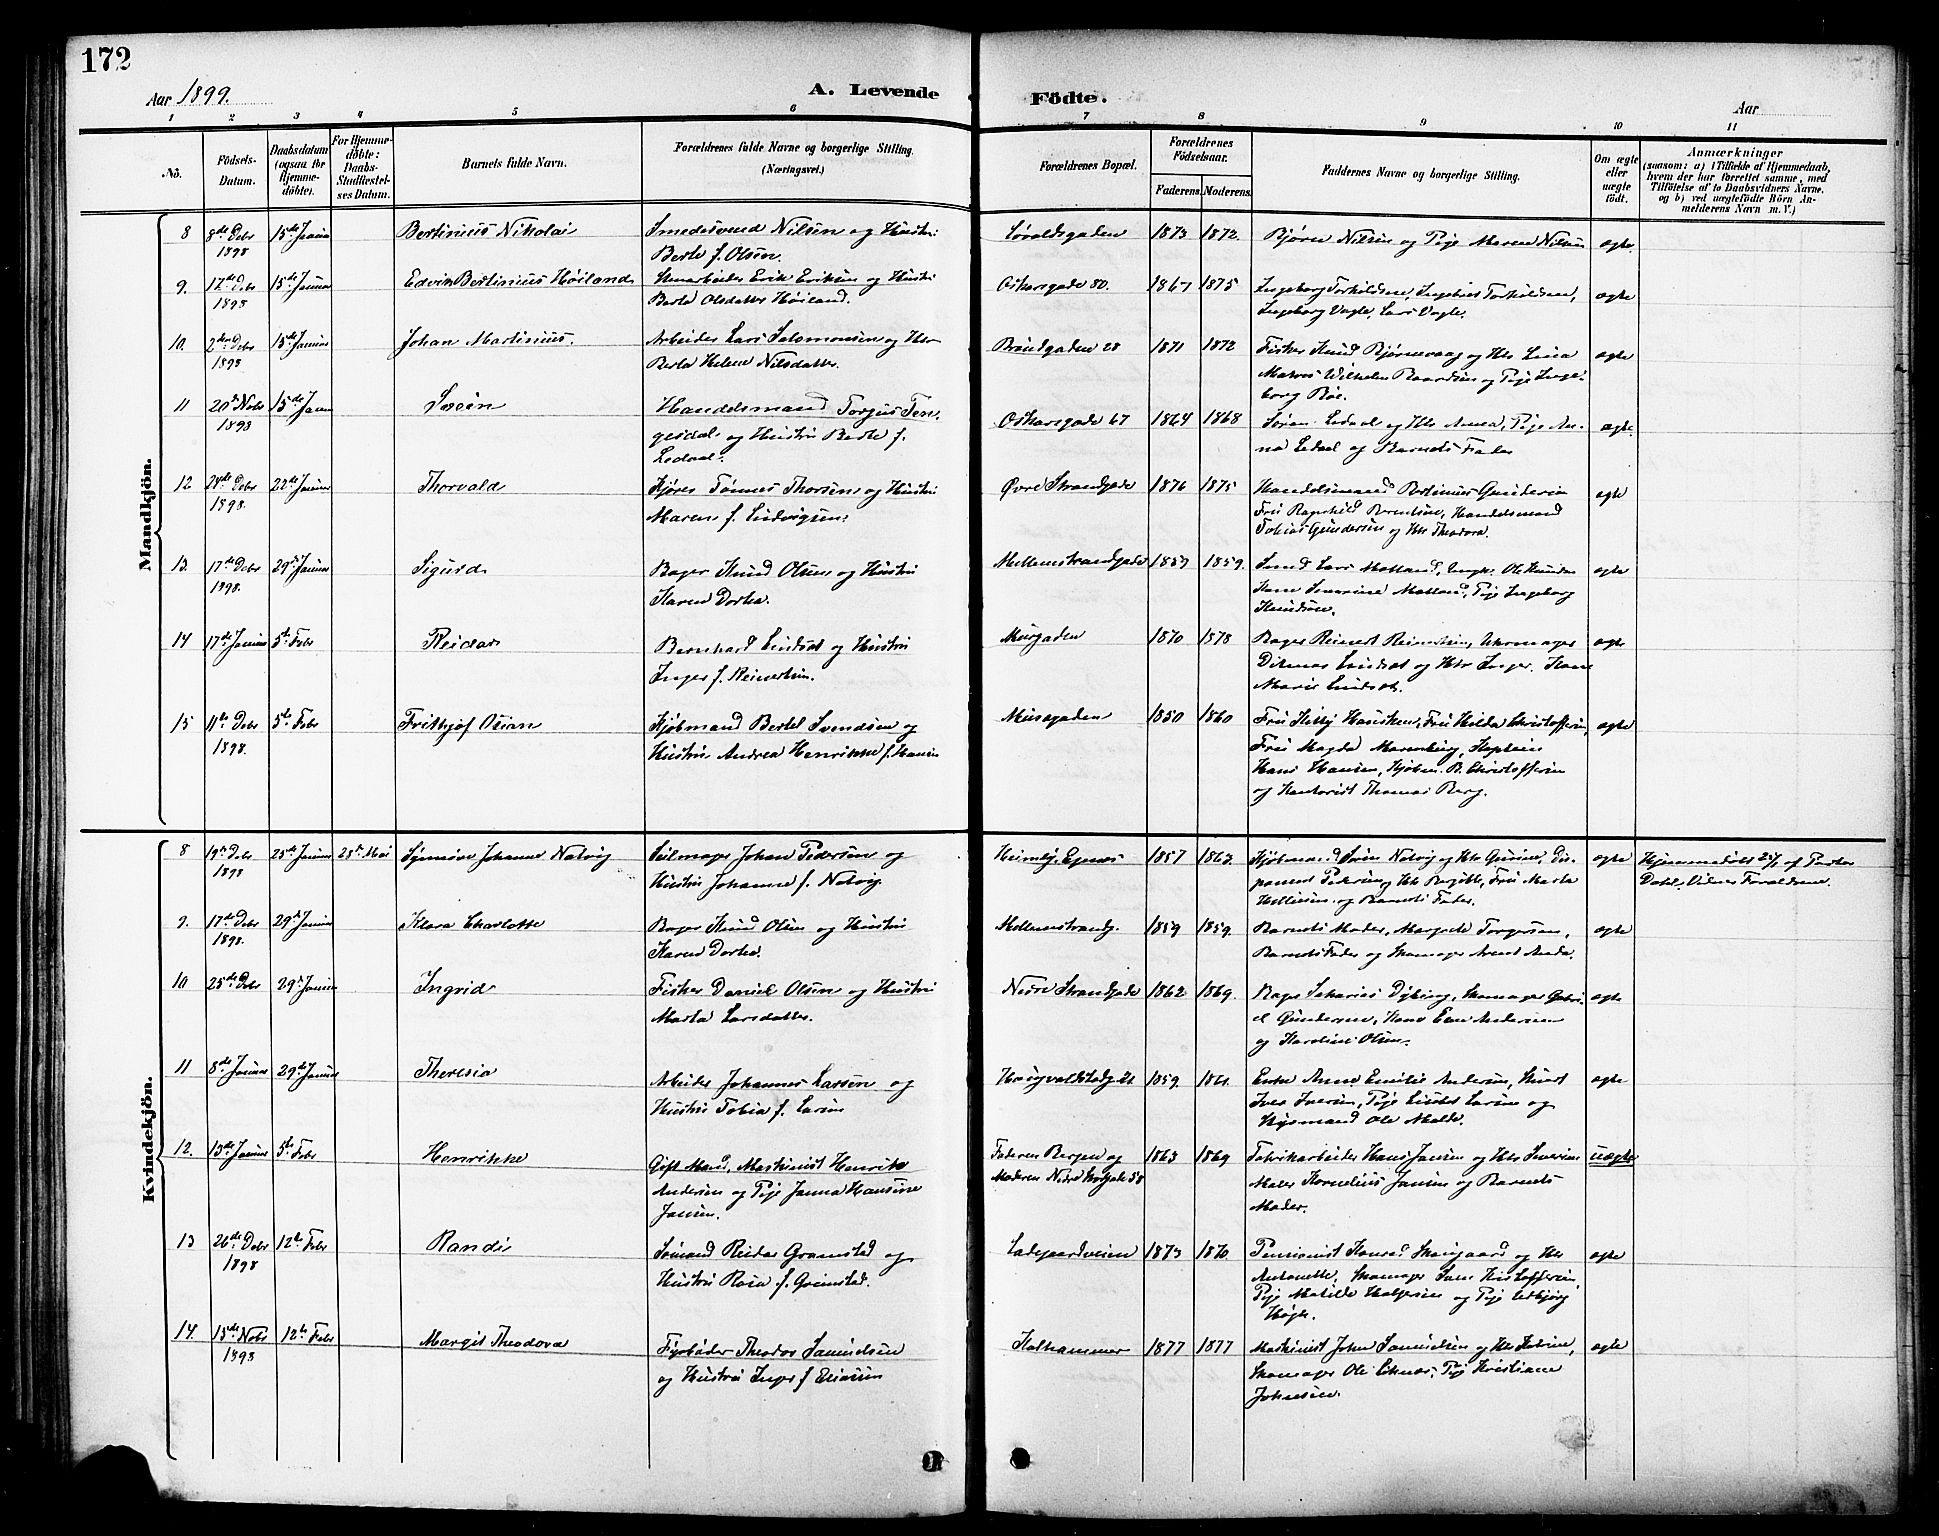 172
Aar 1899.
A. Levende
Födte.
Aar
1 2 3 4 5 6 7 8 9 10 11
No.
Födsels-Datum.
Daabsdatum (ogsaa for Hjemmedöbte).
For Hjemmedöbte: Daabs-Stadfæstelses Datum.
Barnets fulde Navn.
Forældrenes fulde Navne og borgerlige Stilling. (Næringsvei.)
Forældrenes Bopæl.
Forældrenes Födselsaar.
Faderens. Moderens.
Faddernes Navne og borgerlige Stilling.
Om ægte eller uægte födt.
Anmærkninger
(saasom: a) i Tilfælde af Hjemmedaab, hvem der har forrettet samme, med Tilföielse af to Daabsvidners Navne, og b) ved uægtefödte Börn Anmelderens Navn m. V.)
Mandkjön.
8 8de Debr 1898 15de Januar Bertinius Nikolai Smedesvend Nilsen og Hustru
Berte f. Olsen. Løvoldsgaden 1873 1872. Bjørn Nilsen og Pige Maren Nilsen ægte
9. 17de Debr 1898 15de Januar Edvin Bertinius Høiland Erik Eriksen og Hustru
Berta Olsdatter Høiland. Oskarsgade 80. 1867 1875 Ingeborg Torkildsen, Torkildsen,
Ingeborg Vagle, Lars Vagle. ægte
10. 2den Debr 1898 15de Januar Johan Martinius. Arbeider Lars Salomonsen og Hst
Berta Helene Nilsdatter. 28 1871 1872 Fisker Knud og Hst Lina
Matros Wilhelm og Pige Inge-
borg Røe. ægte
11 20de Nobr 1898 15de Januar Svein Handelsmand Torjus Ten-
gesdal og Hustru Berte f.
Ledaal. Oskarsgade 67 1864 1868 Søren Ledaal og Hst Anna, Pige An-
na Ledaal og Barnets Fader ægte.
12 24de Debr 1898. 22de Januar Thorvald Kjører Tønnes Thorsen og Hustru
Maren f. Ludvigsen. Øvre Strandgade 1876 1875 Handelsmand Bertinius Gundersen
Fru Ragnhild Berentsen, Handelsmand
Tobias Gundersen og Hst Theodora. ægte
13. 17de Debr 1898. 29de Januar Sigurd Bager Knud Olsen og Hustru
Karen Dortea. Mellemstrandgade 1859 1859. Smed Lars Molland, Ungk. Ole Knudsen
Kone Severine Molland, Pige Ingeborg
Knudsen. ægte
14 17de Januar 5te Febr Reidar Bernhard Lindset og Hustru
Inger f. Reinertsen. Murgaden 1870 1878 Bager Reinert Reinertsen, Uhrmager
Ditmar Lindset og Hst Inger, Kone
Marie Lindset. ægte
15 11te Debr 1898. 5te Febr Frithjof Osian Kjøbmand Bertel Svendsen og
Hustru Andrea Henrikke f. Hansen Musegaden 1850 1860 Fru Kitty Hausken, Fru Hilda Christoffersen,
Fru Magda Kaptein
Hans Hansen, Kjøbm. B. Christoffersen
og Kontorist Thomas Berg. ægte
Kvindekjön.
8 19de Debr 1898 25de Januar 28de Mai Synnøve Johanne Natvig Seilmager Johan Pedersen og
Hustru Johanne f. Natvig. Heimly, Egenes 1857 1863. Kjøbmand Søren Natvig og Hst Gurine, Dis-
ponent Pedersen, Hst Bergitte, Fru Marta
Helliesen og Barnets Fader. ægte Hjemmedøbt 25/1 af Pastor
Dahl. Vidner Forældrene.
9. 17de Debr 1898. 29de Januar Klara Charlotte Bager Knud Olsen og Hustru
Karen Dortea. Mellemstrandg. 1859 1859. Barnets Moder, Margrete Torgersen,
Barnets Fader og Skomager Anda. ægte
10 25de Debr 29de Januar Ingrid Fisker Daniel Olsen og Hustru
Marta Larsdatter. Nedre Strandgade 1862 1869. Bager Sakarias Dybing, Skomager Gabri-
el Gundersen, Kone Andersen
og Karoline Olsen. ægte
11 8de Januar 29de Januar Theresia Arbeider Johannes Larsen og
Hustru Tobia f. Larsen 21 1859. 1861. Enke Anne Emilie Andersen,
Iver Iversen, Pige Lisabet Larsen og
Ole Molde. ægte
12. 13de Januar 5te Febr Henrikke Gift Mand, Maskinist Henrik
Andersen og Pige Janna Hansine
Jansen. Faderen Bergen og
Moderen Nedre 58 1863 1869 Fabrikarbeider Hans Jansen og Hst Severine
Maler Kornelius Jansen og Barnets
Moder. uægte
13 26de Debr 1898 12te Febr Randi Sømand Reidar Gramstad og
Hustru Rosa f. Grimstad. Ladegaardsveien 1873 1870 Pensionist Konrad og Hst
Antonette, Skomager Kristoffersen,
Pige Matilde og Pige
ægte
14. 15de Nobr 1898 12te Febr Margit Theodora Fyrbøder Theodor Samuelsen
og Hustru Inger f. Eliassen Kalhammer 1877 1877 Maskinist John Samuelsen og Hst
Skomager Ole Pige Kristiane
Johnsen. ægte